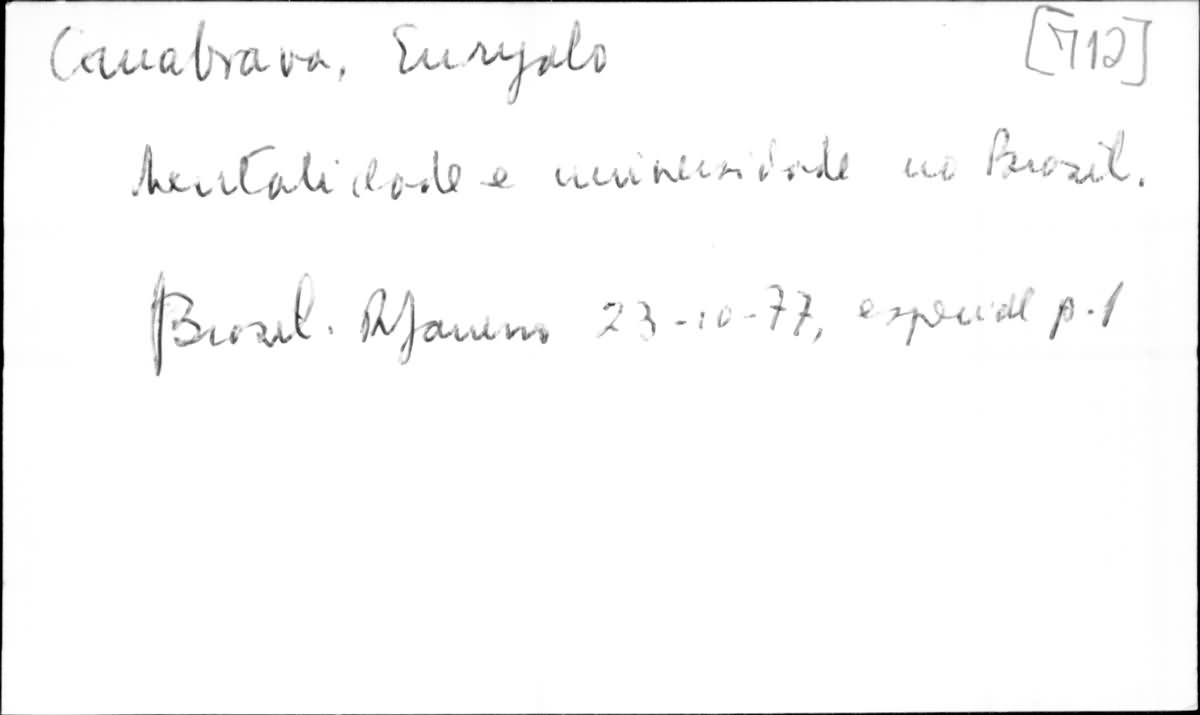 Canabrava, Euryalo [712]
Mentalidade e universidade no Brasil.
JBrasil. RJaneiro 23-10-77, especial p.1